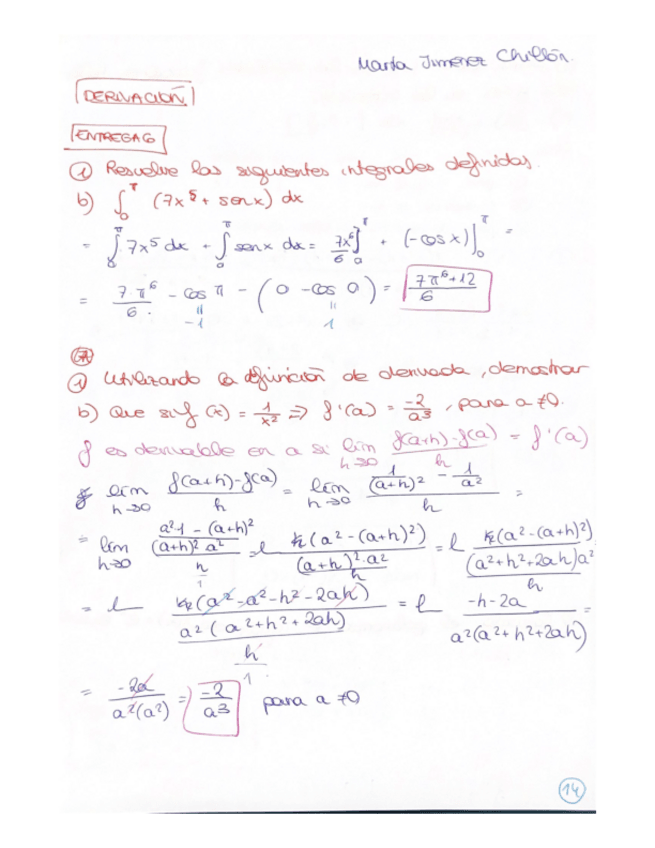 Marta Jiménez Chillón.
DERIVACIÓN
ENTREGA 6
① Resuelve las siguientes integrales definidas.
b) ∫₀^π (7x⁵ + sen x) dx
= ∫₀^π 7x⁵ dx + ∫₀^π sen x dx = 7x⁶/6 ]₀^π + (-cos x) ]₀^π =
= 7·π⁶/6 - cos π - (0 - cos 0) = (7π⁶+12)/6
-1 1
① Utilizando la definición de derivada, demostrar
b) Que si f(x) = 1/x² ⇒ f'(a) = -2/a³, para a ≠ 0.
f es derivable en a si lim h→0 (f(a+h)-f(a))/h = f'(a)
lim h→0 (f(a+h)-f(a))/h = lim h→0 (1/(a+h)² - 1/a²)/h =
= lim h→0 ((a²·1 - (a+h)²)/((a+h)² a²))/(h/1) = l (h(a²-(a+h)²))/((a+h)²·a²)/h = l (h(a²-(a+h)²))/((a²+h²+2ah)a²)/h
= l (h(a²-a²-h²-2ah))/(a²(a²+h²+2ah))/(h/1) = l (-h-2a)/(a²(a²+h²+2ah)) =
= -2a/(a²(a²)) = -2/a³ para a ≠ 0
14